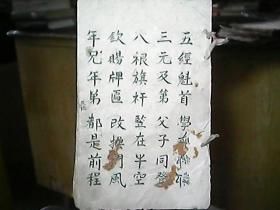 五經魁首 學
三元及第 父子同登
八根旗杆 竪在半空
欽賜牌匾 改換門風
年兄年弟 都是前程